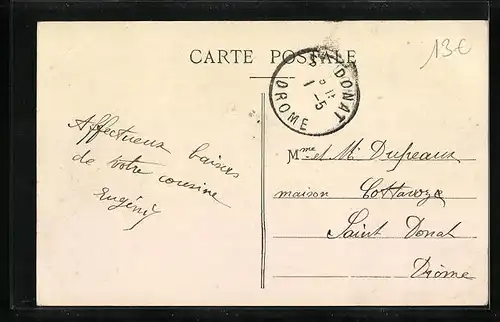 CARTE POSTALE
13€
St DONAT
1-5
DROME
Affectueux baisers
de votre cousine
Eugénie
Mme et Mr Dupeaux
maison
Saint Donat
Drôme